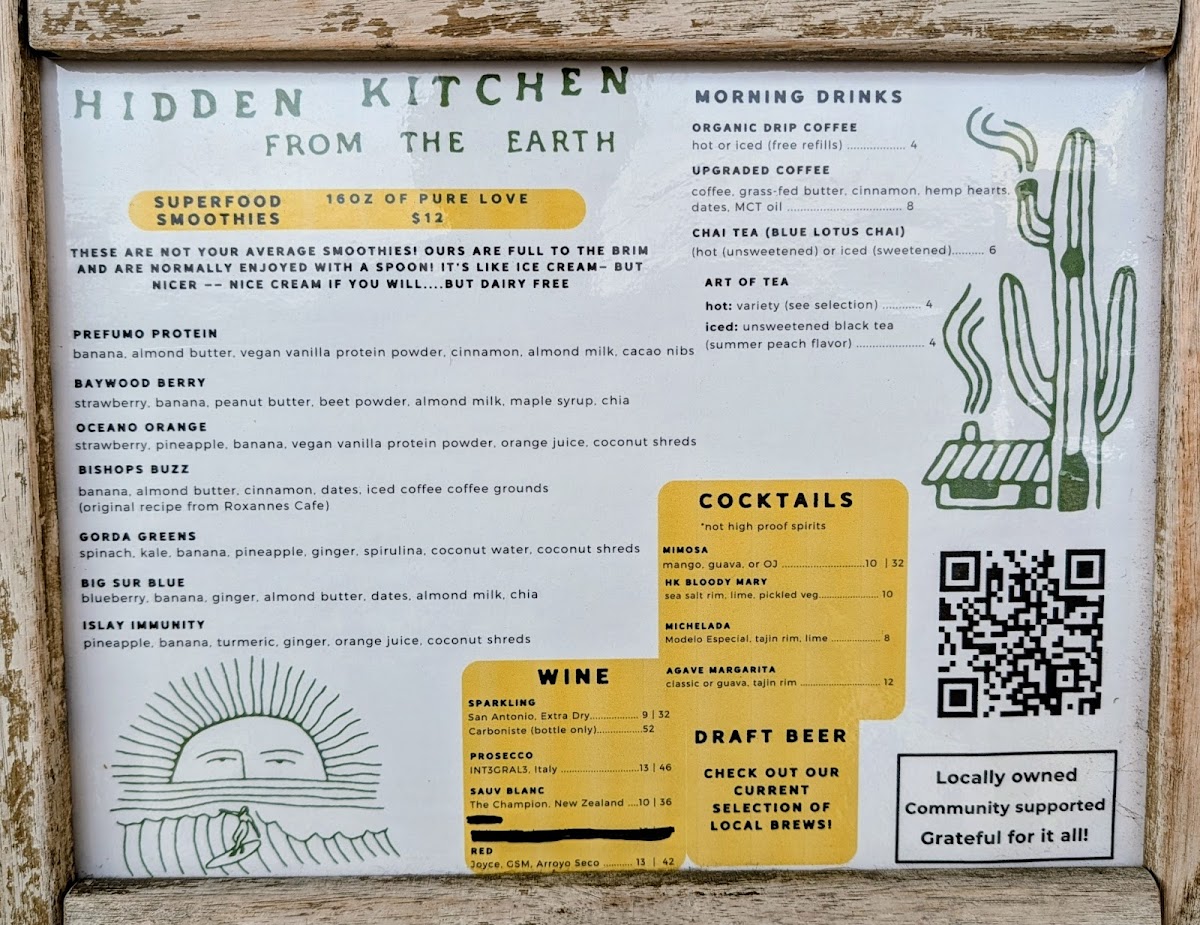 HIDDEN KITCHEN
FROM THE EARTH
SUPERFOOD
SMOOTHIES
16OZ OF PURE LOVE
$12
THESE ARE NOT YOUR AVERAGE SMOOTHIES! OURS ARE FULL TO THE BRIM
AND ARE NORMALLY ENJOYED WITH A SPOON! IT'S LIKE ICE CREAM– BUT
NICER –– NICE CREAM IF YOU WILL....BUT DAIRY FREE
PREFUMO PROTEIN
banana, almond butter, vegan vanilla protein powder, cinnamon, almond milk, cacao nibs
BAYWOOD BERRY
strawberry, banana, peanut butter, beet powder, almond milk, maple syrup, chia
OCEANO ORANGE
strawberry, pineapple, banana, vegan vanilla protein powder, orange juice, coconut shreds
BISHOPS BUZZ
banana, almond butter, cinnamon, dates, iced coffee coffee grounds
(original recipe from Roxannes Cafe)
GORDA GREENS
spinach, kale, banana, pineapple, ginger, spirulina, coconut water, coconut shreds
BIG SUR BLUE
blueberry, banana, ginger, almond butter, dates, almond milk, chia
ISLAY IMMUNITY
pineapple, banana, turmeric, ginger, orange juice, coconut shreds
MORNING DRINKS
ORGANIC DRIP COFFEE
hot or iced (free refills) .................. 4
UPGRADED COFFEE
coffee, grass-fed butter, cinnamon, hemp hearts,
dates, MCT oil ................................... 8
CHAI TEA (BLUE LOTUS CHAI)
(hot (unsweetened) or iced (sweetened).......... 6
ART OF TEA
hot: variety (see selection) ............ 4
iced: unsweetened black tea
(summer peach flavor) ..................... 4
COCKTAILS
*not high proof spirits
MIMOSA
mango, guava, or OJ ........................10 | 32
HK BLOODY MARY
sea salt rim, lime, pickled veg.................. 10
MICHELADA
Modelo Especial, tajin rim, lime ............... 8
AGAVE MARGARITA
classic or guava, tajin rim ......................... 12
WINE
SPARKLING
San Antonio, Extra Dry................ 9 | 32
Carboniste (bottle only)...............52
PROSECCO
INT3GRAL3, Italy ..........................13 | 46
SAUV BLANC
The Champion, New Zealand ....10 | 36
RED
Joyce, GSM, Arroyo Seco .......... 13 | 42
DRAFT BEER
CHECK OUT OUR
CURRENT
SELECTION OF
LOCAL BREWS!
Locally owned
Community supported
Grateful for it all!